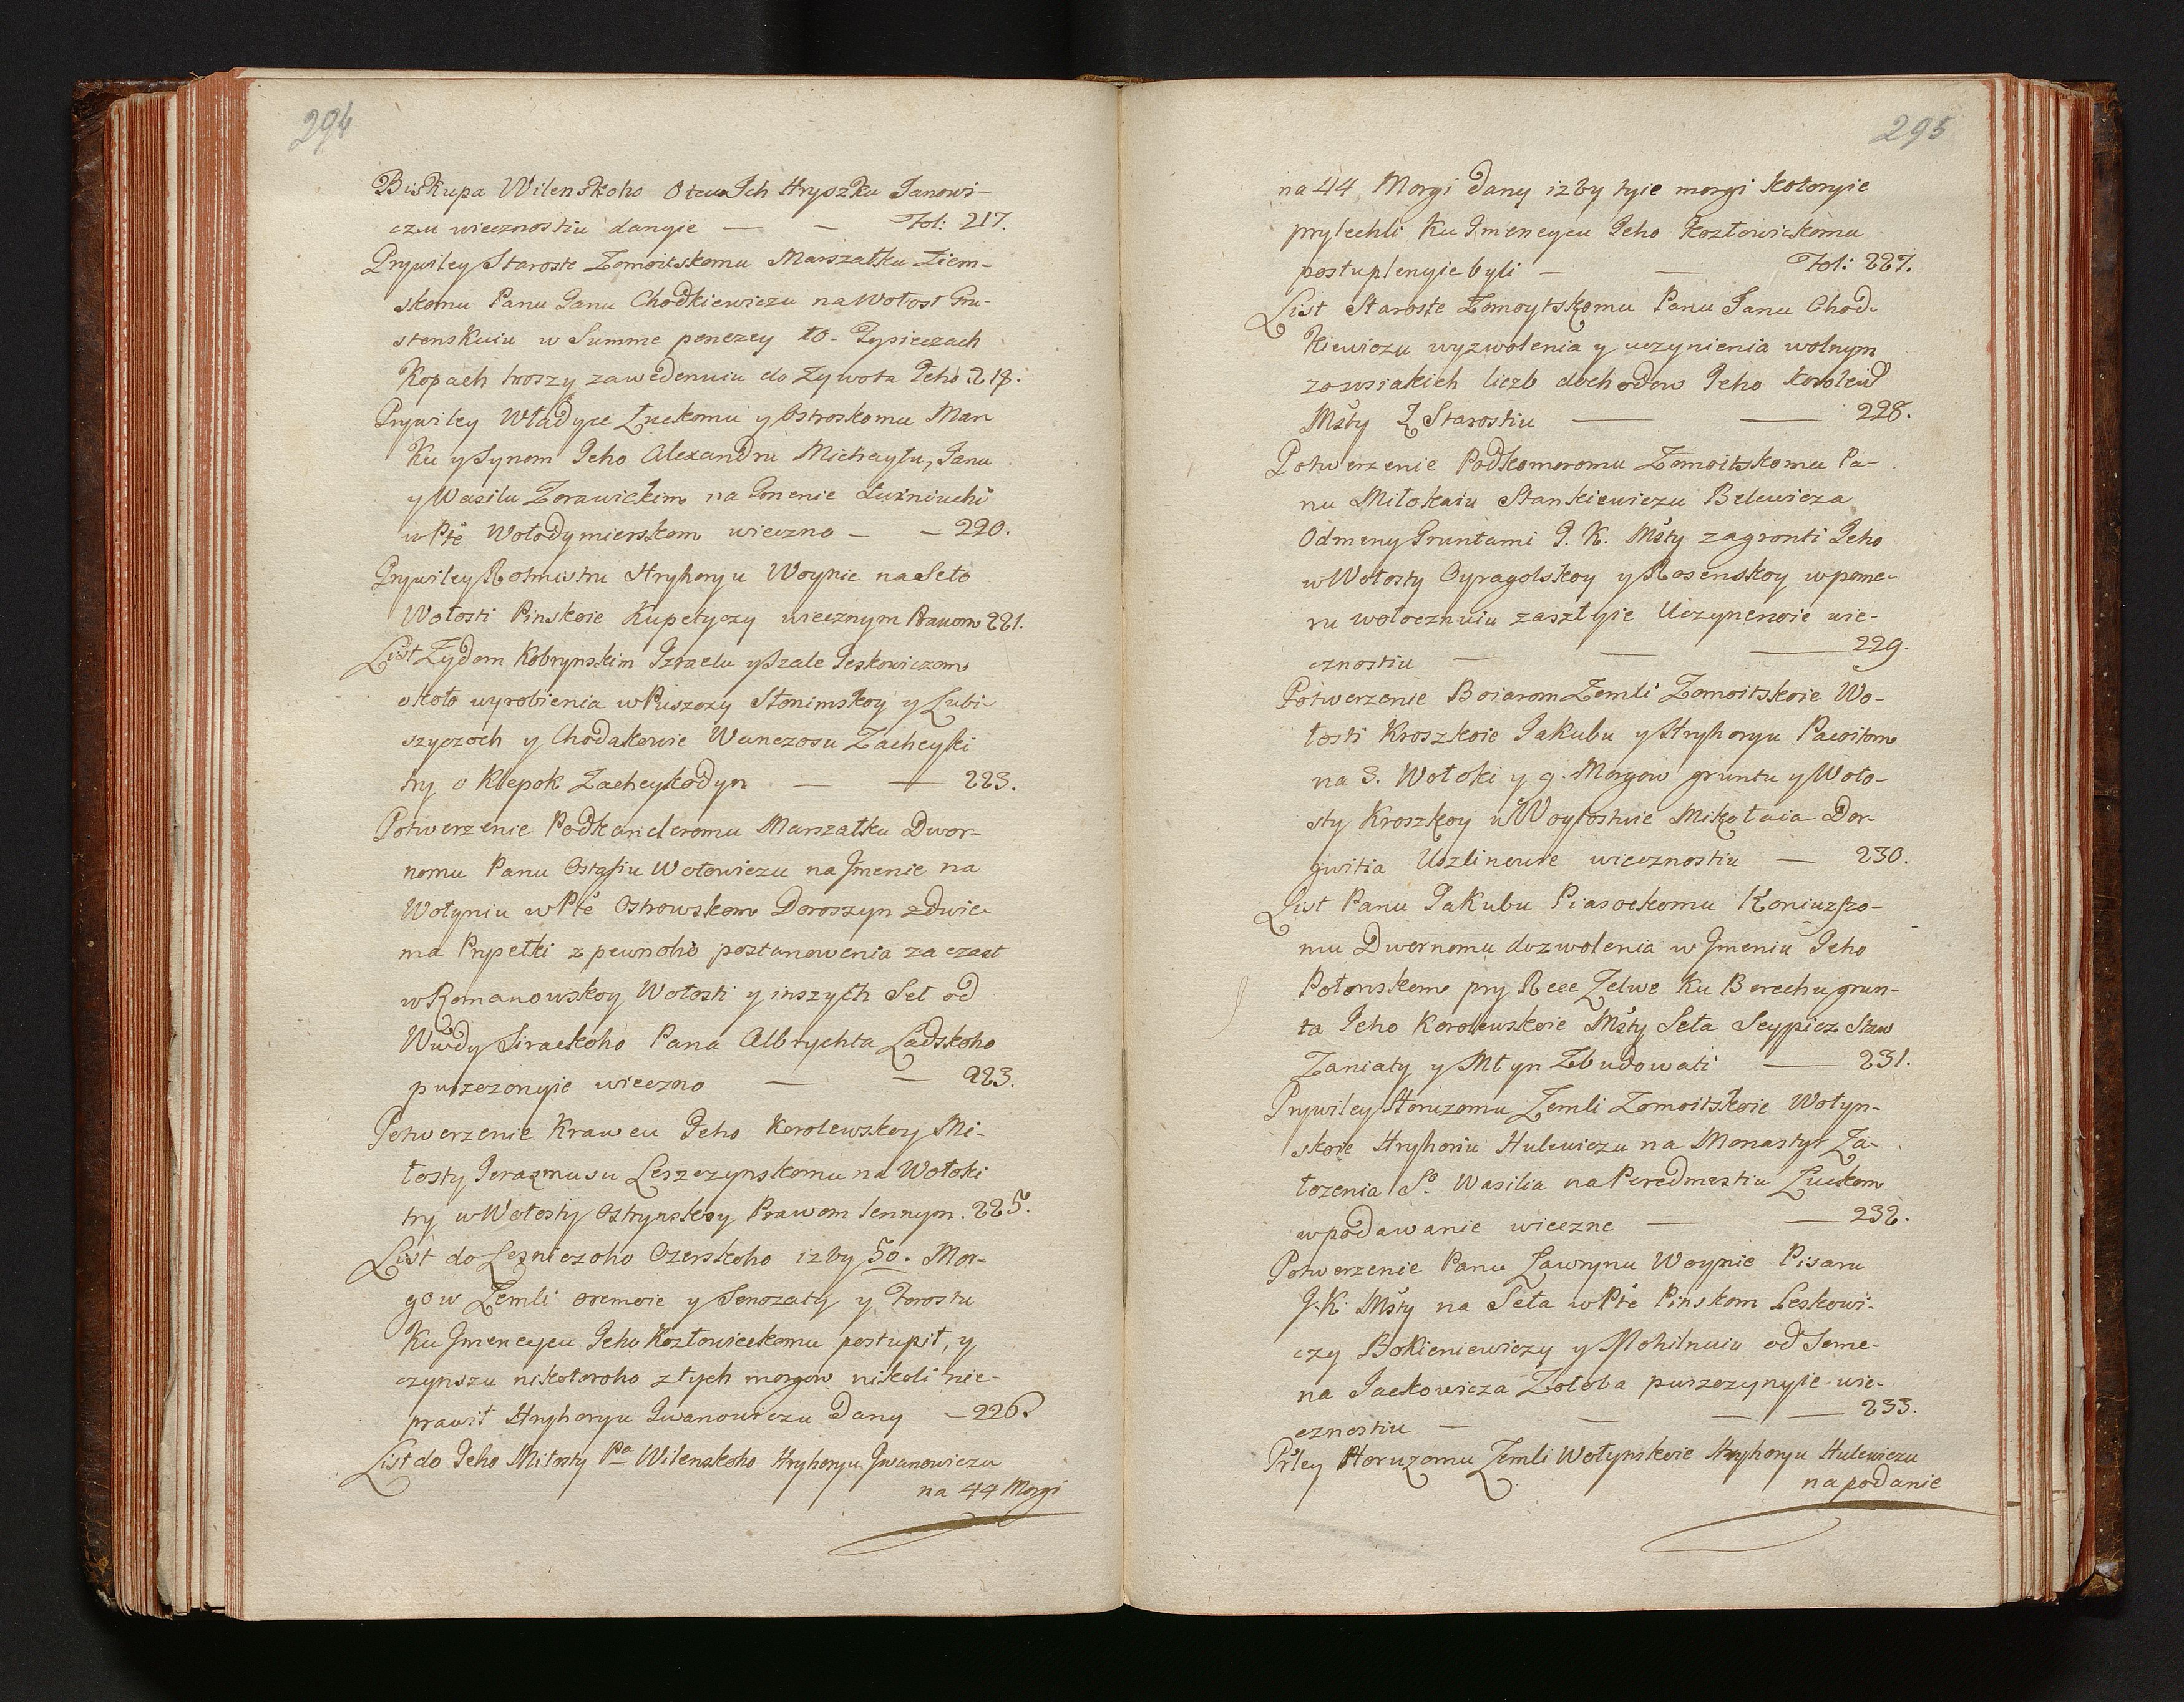 294
Biskupa Wilenskoho Otcu Ich Hryszku Janowi-
czu wiecznostiu danyie — — Fol: 217.
Prywiley Staroste Zomoitskomu Marszałku Ziem-
skomu Panu Janu Chodkiewiczu na Wołost Gru-
stenskuiu w Summe penezey 10. Tysieczach
Kopach hroszy zawedenuiu do Zywota Jeho 218.
Prywiley Władyce Łuckomu y Ostroskomu Mar
Ku y Synom Jeho Alexandru Michayłu, Janu
y Wasilu Zorawickim na Imenie Łuzniuchi
w Pte Wołodymierskom wieczno — — 220.
Prywiley Rotmistru Hryhoryu Woynie na Seło
Wołosti Pinskoie Kupetyczy wiecznym Prauom 221.
List Zydom Kobrynskim Izraelu y Szale Jeskowiczom
około wyrobienia w Puszczy Słonimskoy y Lubi-
szyczoch y Chodakowie Wanczosu Zacheyki
try o Klepok Zacheykodyn — — 223.
Potwerzenie Podkancleromu Marszałku Dwor-
nomu Panu Ostafiu Wołowiczu na Imenie na
Wołyniu w Pte Ostrowskom Doroszyn z dwie-
ma Prypetki z pewnoho postanowenia za czast
w Romanowskoy Wołosti y inszych Seł od
Wwdy Sirackoho Pana Albrychta Ladskoho
puszczonyie wieczno — — 223.
Potwerzenie Krawcu Jeho Korolewskoy Mi-
łosty Jerazmusu Leszczynskomu na Wołoki
try w Wołosty Ostrynskoy Prawom lennym. 225.
List do Lesniczoho Ozerskoho izby 50. Mor-
gow Zemli oremoie y Senozaty y Zorostu
Ku Imeneycu Jeho Kozłowieckomu postupił, y
czynszu nikotoroho z tych morgow nikoli nie-
prawił Hryhoryu Iwanowiczu Dany — 226.
List do Jeho Miłosty Pa Wilenskoho Hryhoryu Iwanowiczu
na 44 Morgi
295
na 44 Morgi dany izby tyie morgi Kotoryie
prylechli Ku Imeneycu Jeho Kozłowickomu
postuplenyie byli — — Fol: 227.
List Staroste Zomoytskomu Panu Janu Chod-
Kiewiczu wyzwolenia y uczynienia wolnym
zo wsiakich liczb dochodow Jeho Korolews
Msty Z Starostiu — — 228.
Potwerzenie Podkomoromu Zomoitskomu Pa-
nu Miłokaiu Stankiewiczu Belewicza
Odmeny Gruntami J. K. Msty za gronti Jeho
w Wołosty Oyragolskoy y Rosenskoy w pome-
ru wołocznuiu zaszłyie Uczynenoie wie-
cznostiu — — — 229.
Potwerzenie Boiarom Zemli Zomoitskoie Wo-
łosti Kroszkoie Jakubu y Hryhoryu Pacoitom
na 3. Wołoki y 9. Morgow gruntu y Woło-
sty Kroszkoy u Woytostwie Mikołaia Dor-
gwitia Uszlinowe wiecznostiu — 230.
List Panu Jakubu Piasockomu Koniuszo-
mu Dwornomu dozwolenia w Imeniu Jeho
Połonskom pry Rece Zelwe Ku Berechu grun-
ta Jeho Korolewskoie Msty Seła Seypicz Staw
Zaniaty y Młyn Zbudowati — 231.
Prywiley Horuzomu Zemli Zomoitskoie Wołyn-
skoie Hryhoriu Hulewiczu na Monastyr Za-
łozenia So Wasilia na Peredmestiu Łuckom
w podawanie wieczne — — 232.
Potwerzenie Panu Ławrynu Woynie Pisaru
J. K. Msty na Seła w Pte Pinskom Leskowi-
czy Bokieniewiczy y Mohilnuiu od Seme-
na Jackowicza Zołoba puszczynyie wie-
cznostiu — — — — 233.
Prley Horuzomu Zemli Wołynskoie Hryhoryu Hulewiczu
na podanie